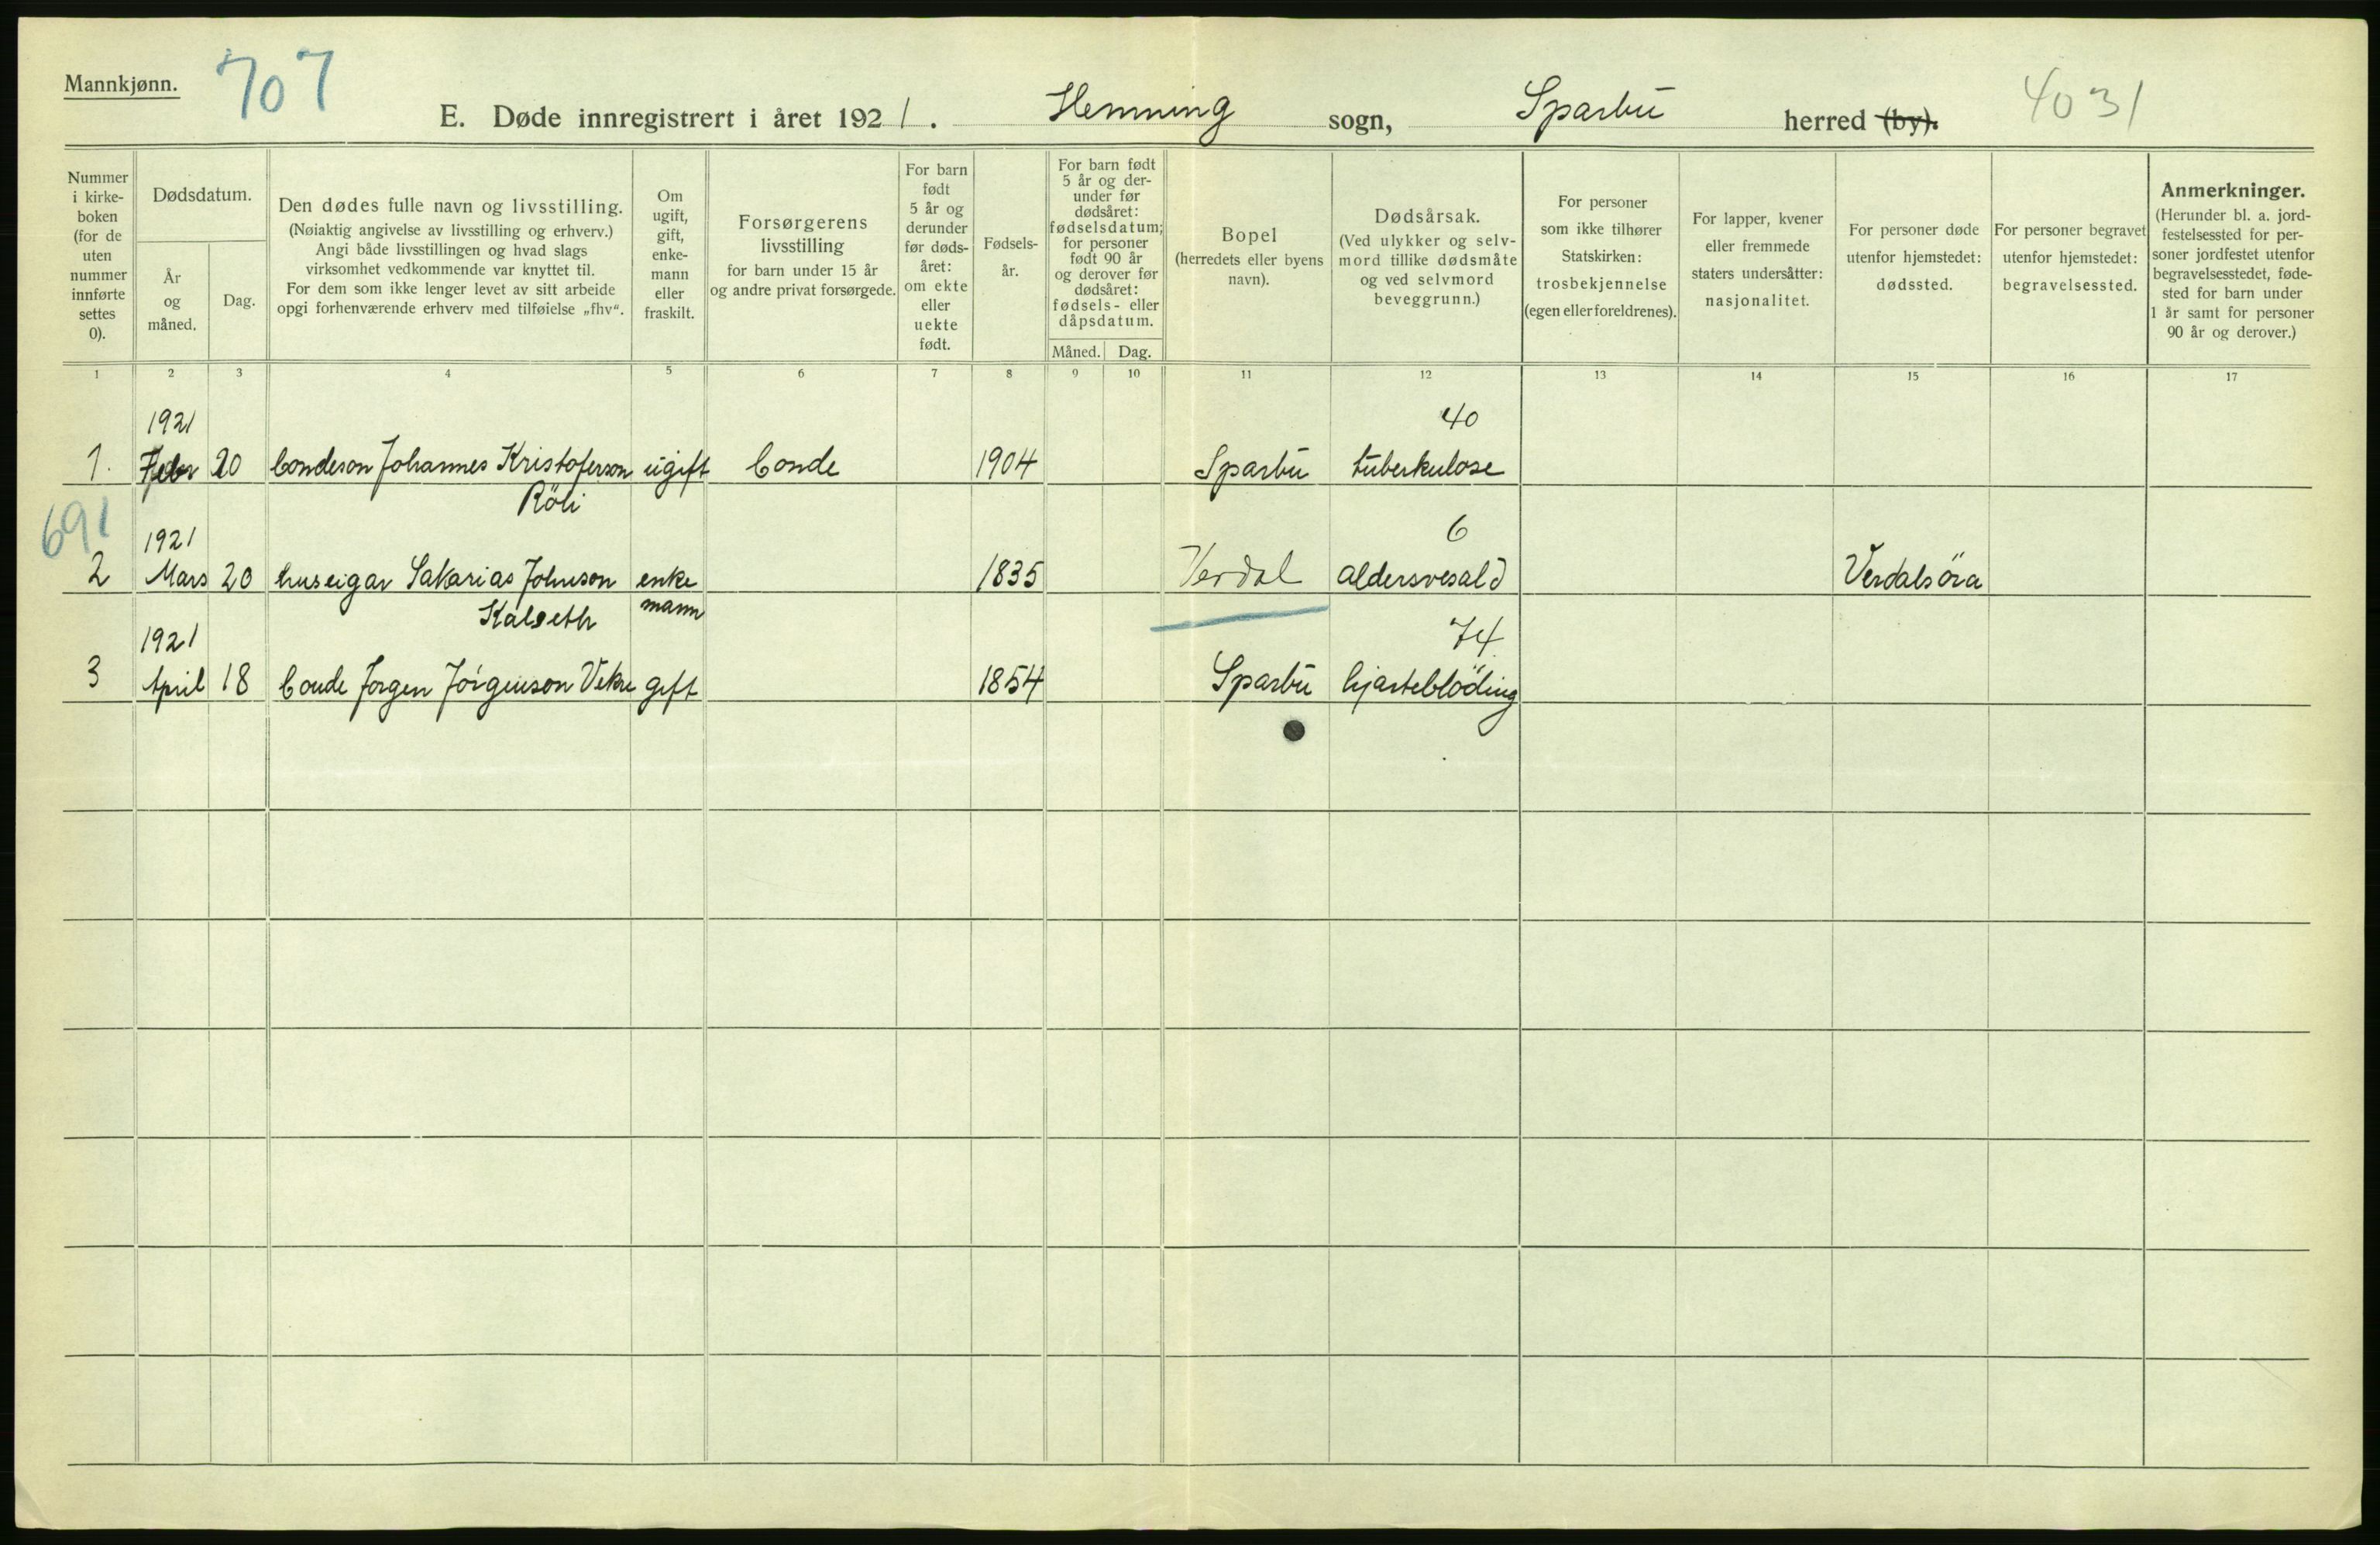 Mannkjønn.
707
E. Døde innregistrert i året 1921. Henning sogn, Sparbu herred (by).
4031
Nummer i kirke-boken (for de uten nummer innførte settes 0).
Dødsdatum.
År og måned.
Dag.
Den dødes fulle navn og livsstilling.
(Nøiaktig angivelse av livsstilling og erhverv.)
Angi både livsstillingen og hvad slags
virksomhet vedkommende var knyttet til.
For dem som ikke lenger levet av sitt arbeide
opgi forhenværende erhverv med tilføielse „fhv“.
Om ugift, gift, enke-mann eller fraskilt.
Forsørgerens
livsstilling
for barn under 15 år
og andre privat forsørgede.
For barn født 5 år og derunder før døds-året: om ekte eller uekte født.
Fødsels-år.
For barn født 5 år og der-under før dødsåret: fødselsdatum; for personer født 90 år og derover før dødsåret: fødsels- eller dåpsdatum.
Måned. Dag.
Bopel
(herredets eller byens navn).
Dødsårsak.
(Ved ulykker og selv-mord tillike dødsmåte og ved selvmord beveggrunn.)
For personer som ikke tilhører Statskirken: trosbekjennelse (egen eller foreldrenes).
For lapper, kvener eller fremmede staters undersåtter: nasjonalitet.
For personer døde utenfor hjemstedet: dødssted.
For personer begravet utenfor hjemstedet: begravelsessted.
Anmerkninger.
(Herunder bl. a. jord-festelsessted for per-soner jordfestet utenfor begravelsesstedet, føde-sted for barn under 1 år samt for personer 90 år og derover.)
1 2 3 4 5 6 7 8 9 10 11 12 13 14 15 16 17
1921 40
1. Febr 20 bondeson Johannes Kristoferson ugift bonde 1904 Sparbu tuberkulose
Röli
691
1921 6
2 Mars 20 huseigar Sakarias Johnson enke 1835 Verdal aldersvesald Verdalsöra
Kalseth mann
1921 74
3 April 18 bonde Jorgen Jörgenson Vekre gift 1854 Sparbu hjarteblöding